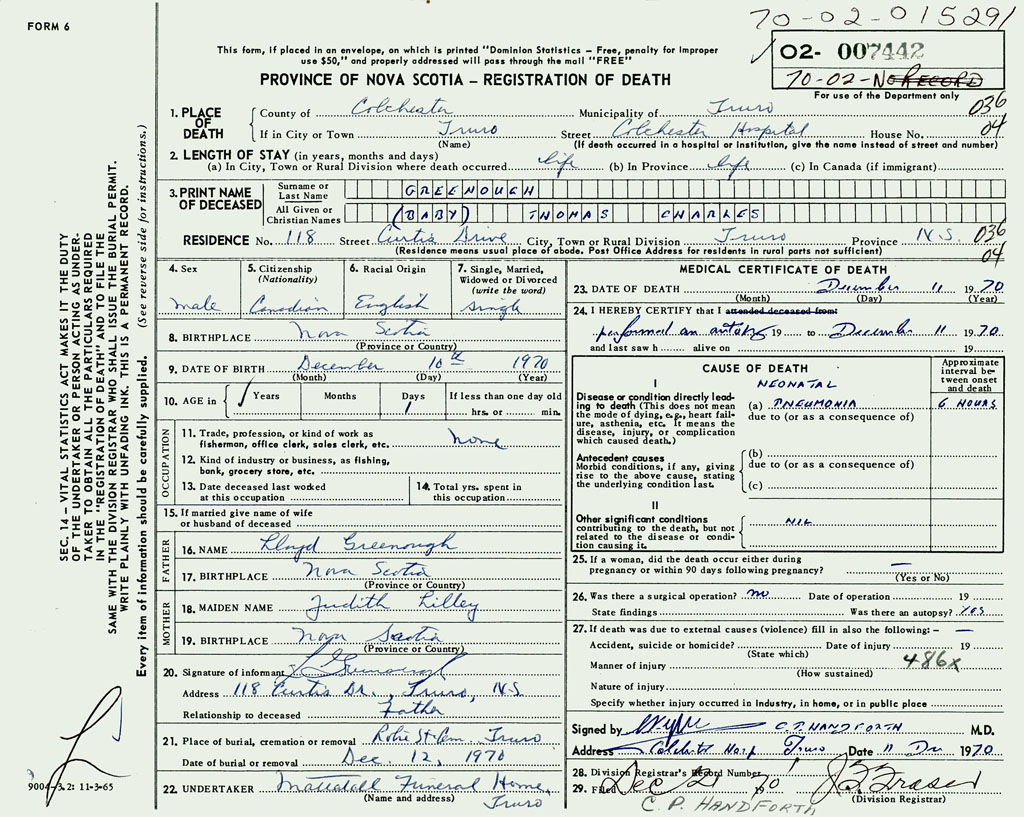 FORM 6
70-02-015291
This form, if placed in an envelope, on which is printed "Dominion Statistics – Free, penalty for improper
use $50," and properly addressed will pass through the mail "FREE"
02- 007442
70-02-No RECORD
For use of the Department only
PROVINCE OF NOVA SCOTIA – REGISTRATION OF DEATH
1. PLACE OF DEATH
County of Colchester Municipality of Truro 036
If in City or Town Truro Street Colchester Hospital House No. 04
(Name) (If death occurred in a hospital or institution, give the name instead of street and number)
2. LENGTH OF STAY (in years, months and days)
(a) In City, Town or Rural Division where death occurred life (b) In Province life (c) In Canada (if immigrant)
3. PRINT NAME OF DECEASED
Surname or Last Name GREENOUGH
All Given or Christian Names (BABY) THOMAS CHARLES
RESIDENCE No. 118 Street Curtis Drive City, Town or Rural Division Truro Province N.S. 036
(Residence means usual place of abode. Post Office Address for residents in rural parts not sufficient) 04
4. Sex
male
5. Citizenship (Nationality)
Canadian
6. Racial Origin
English
7. Single, Married, Widowed or Divorced (write the word)
single
8. BIRTHPLACE Nova Scotia
(Province or Country)
9. DATE OF BIRTH December 10th 1970
(Month) (Day) (Year)
10. AGE in Years Months Days If less than one day
1 hrs. or min.
OCCUPATION
11. Trade, profession, or kind of work as fisherman, office clerk, sales clerk, etc. none
12. Kind of industry or business, as fishing, bank, grocery store, etc.
13. Date deceased last worked at this occupation
14. Total yrs. spent in this occupation
15. If married give name of wife or husband of deceased
FATHER
16. NAME Lloyd Greenough
17. BIRTHPLACE Nova Scotia
(Province or Country)
MOTHER
18. MAIDEN NAME Judith Lilley
19. BIRTHPLACE Nova Scotia
(Province or Country)
20. Signature of informant L Greenough
Address 118 Curtis Dr., Truro, N.S.
Relationship to deceased Father
21. Place of burial, cremation or removal Robie St Cem Truro
Date of burial or removal Dec. 12, 1970
22. UNDERTAKER Mattatall Funeral Home,
(Name and address) Truro
MEDICAL CERTIFICATE OF DEATH
23. DATE OF DEATH December 11 1970
(Month) (Day) (Year)
24. I HEREBY CERTIFY that I attended deceased from
performed an autopsy 19 to December 11 1970
and last saw h alive on 19
CAUSE OF DEATH
Approximate interval between onset and death
I
NEONATAL
Disease or condition directly leading to death (This does not mean the mode of dying, e.g., heart failure, asthenia, etc. It means the disease, injury, or complication which caused death.)
(a) PNEUMONIA 6 HOURS
due to (or as a consequence of)
Antecedent causes
Morbid conditions, if any, giving rise to the above cause, stating the underlying condition last.
(b)
due to (or as a consequence of)
(c)
II
Other significant conditions
contributing to the death, but not related to the disease or condition causing it.
NIL
25. If a woman, did the death occur either during pregnancy or within 90 days following pregnancy? —
(Yes or No)
26. Was there a surgical operation? no Date of operation 19
State findings Was there an autopsy? yes
27. If death was due to external causes (violence) fill in also the following:– —
Accident, suicide or homicide? Date of injury 19
(State which) 486x
Manner of injury
(How sustained)
Nature of injury
Specify whether injury occurred in industry, in home, or in public place
Signed by C.P. HANDFORTH M.D.
Address Colchester Hosp Truro Date 11 Dec 1970
28. Division Registrar's Record Number
29. Filed Dec 21 1970 J B Fraser
(Division Registrar)
C. P. HANDFORTH
SEC. 14 – VITAL STATISTICS ACT MAKES IT THE DUTY
OF THE UNDERTAKER OR PERSON ACTING AS UNDER-
TAKER TO OBTAIN ALL THE PARTICULARS REQUIRED
IN THE "REGISTRATION OF DEATH" AND TO FILE THE
SAME WITH THE DIVISION REGISTRAR WHO SHALL ISSUE THE BURIAL PERMIT.
WRITE PLAINLY WITH UNFADING INK. THIS IS A PERMANENT RECORD.
Every item of information should be carefully supplied. (See reverse side for instructions.)
9004-3.2: 11-3-65